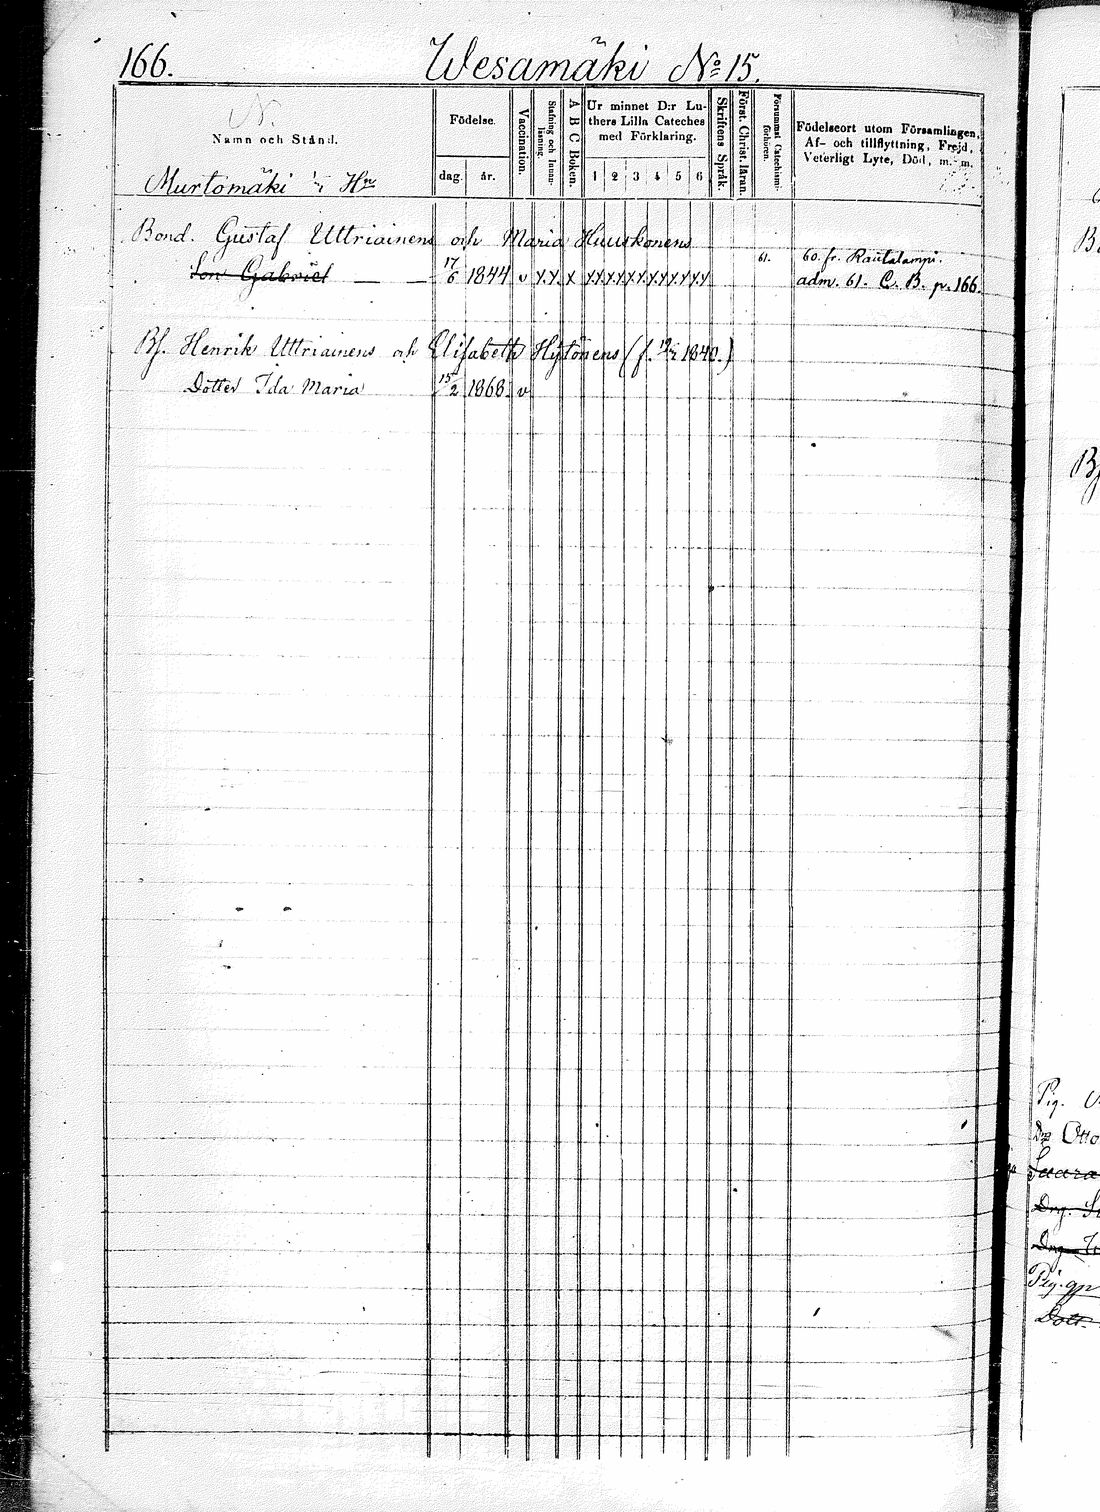 166. Wesamäki No 15.
N.
Namn och Stånd.
Födelse.
dag. år.
Vaccination.
Stafning och Innan-läsning.
A B C Boken.
Ur minnet D:r Lu-
thers Lilla Cateches
med Förklaring.
1 2 3 4 5 6
Skriftens Språk.
Först. Christ. läran.
Försummat Catechismi-förhören.
Födelseort utom Församlingen,
Af- och tillflyttning, Frejd,
Veterligt Lyte, Död, m. m.
Murtomäki Hn
Bond. Gustaf Uttriainens och Maria Huuskonens
61. 60. fr. Rautalampi.
Son Gabriel 17/6 1844 v x x x x x x x x x x x x adm. 61. C. B. p. 166.
Bf. Henrik Uttriainens och Elisabeth Hytönens (f. 19/2 1840.)
Dotter Ida Maria 15/2 1868. v
Bf
Pig.
Otto
Saara
Drg.
Drg
Pig.
Dott.